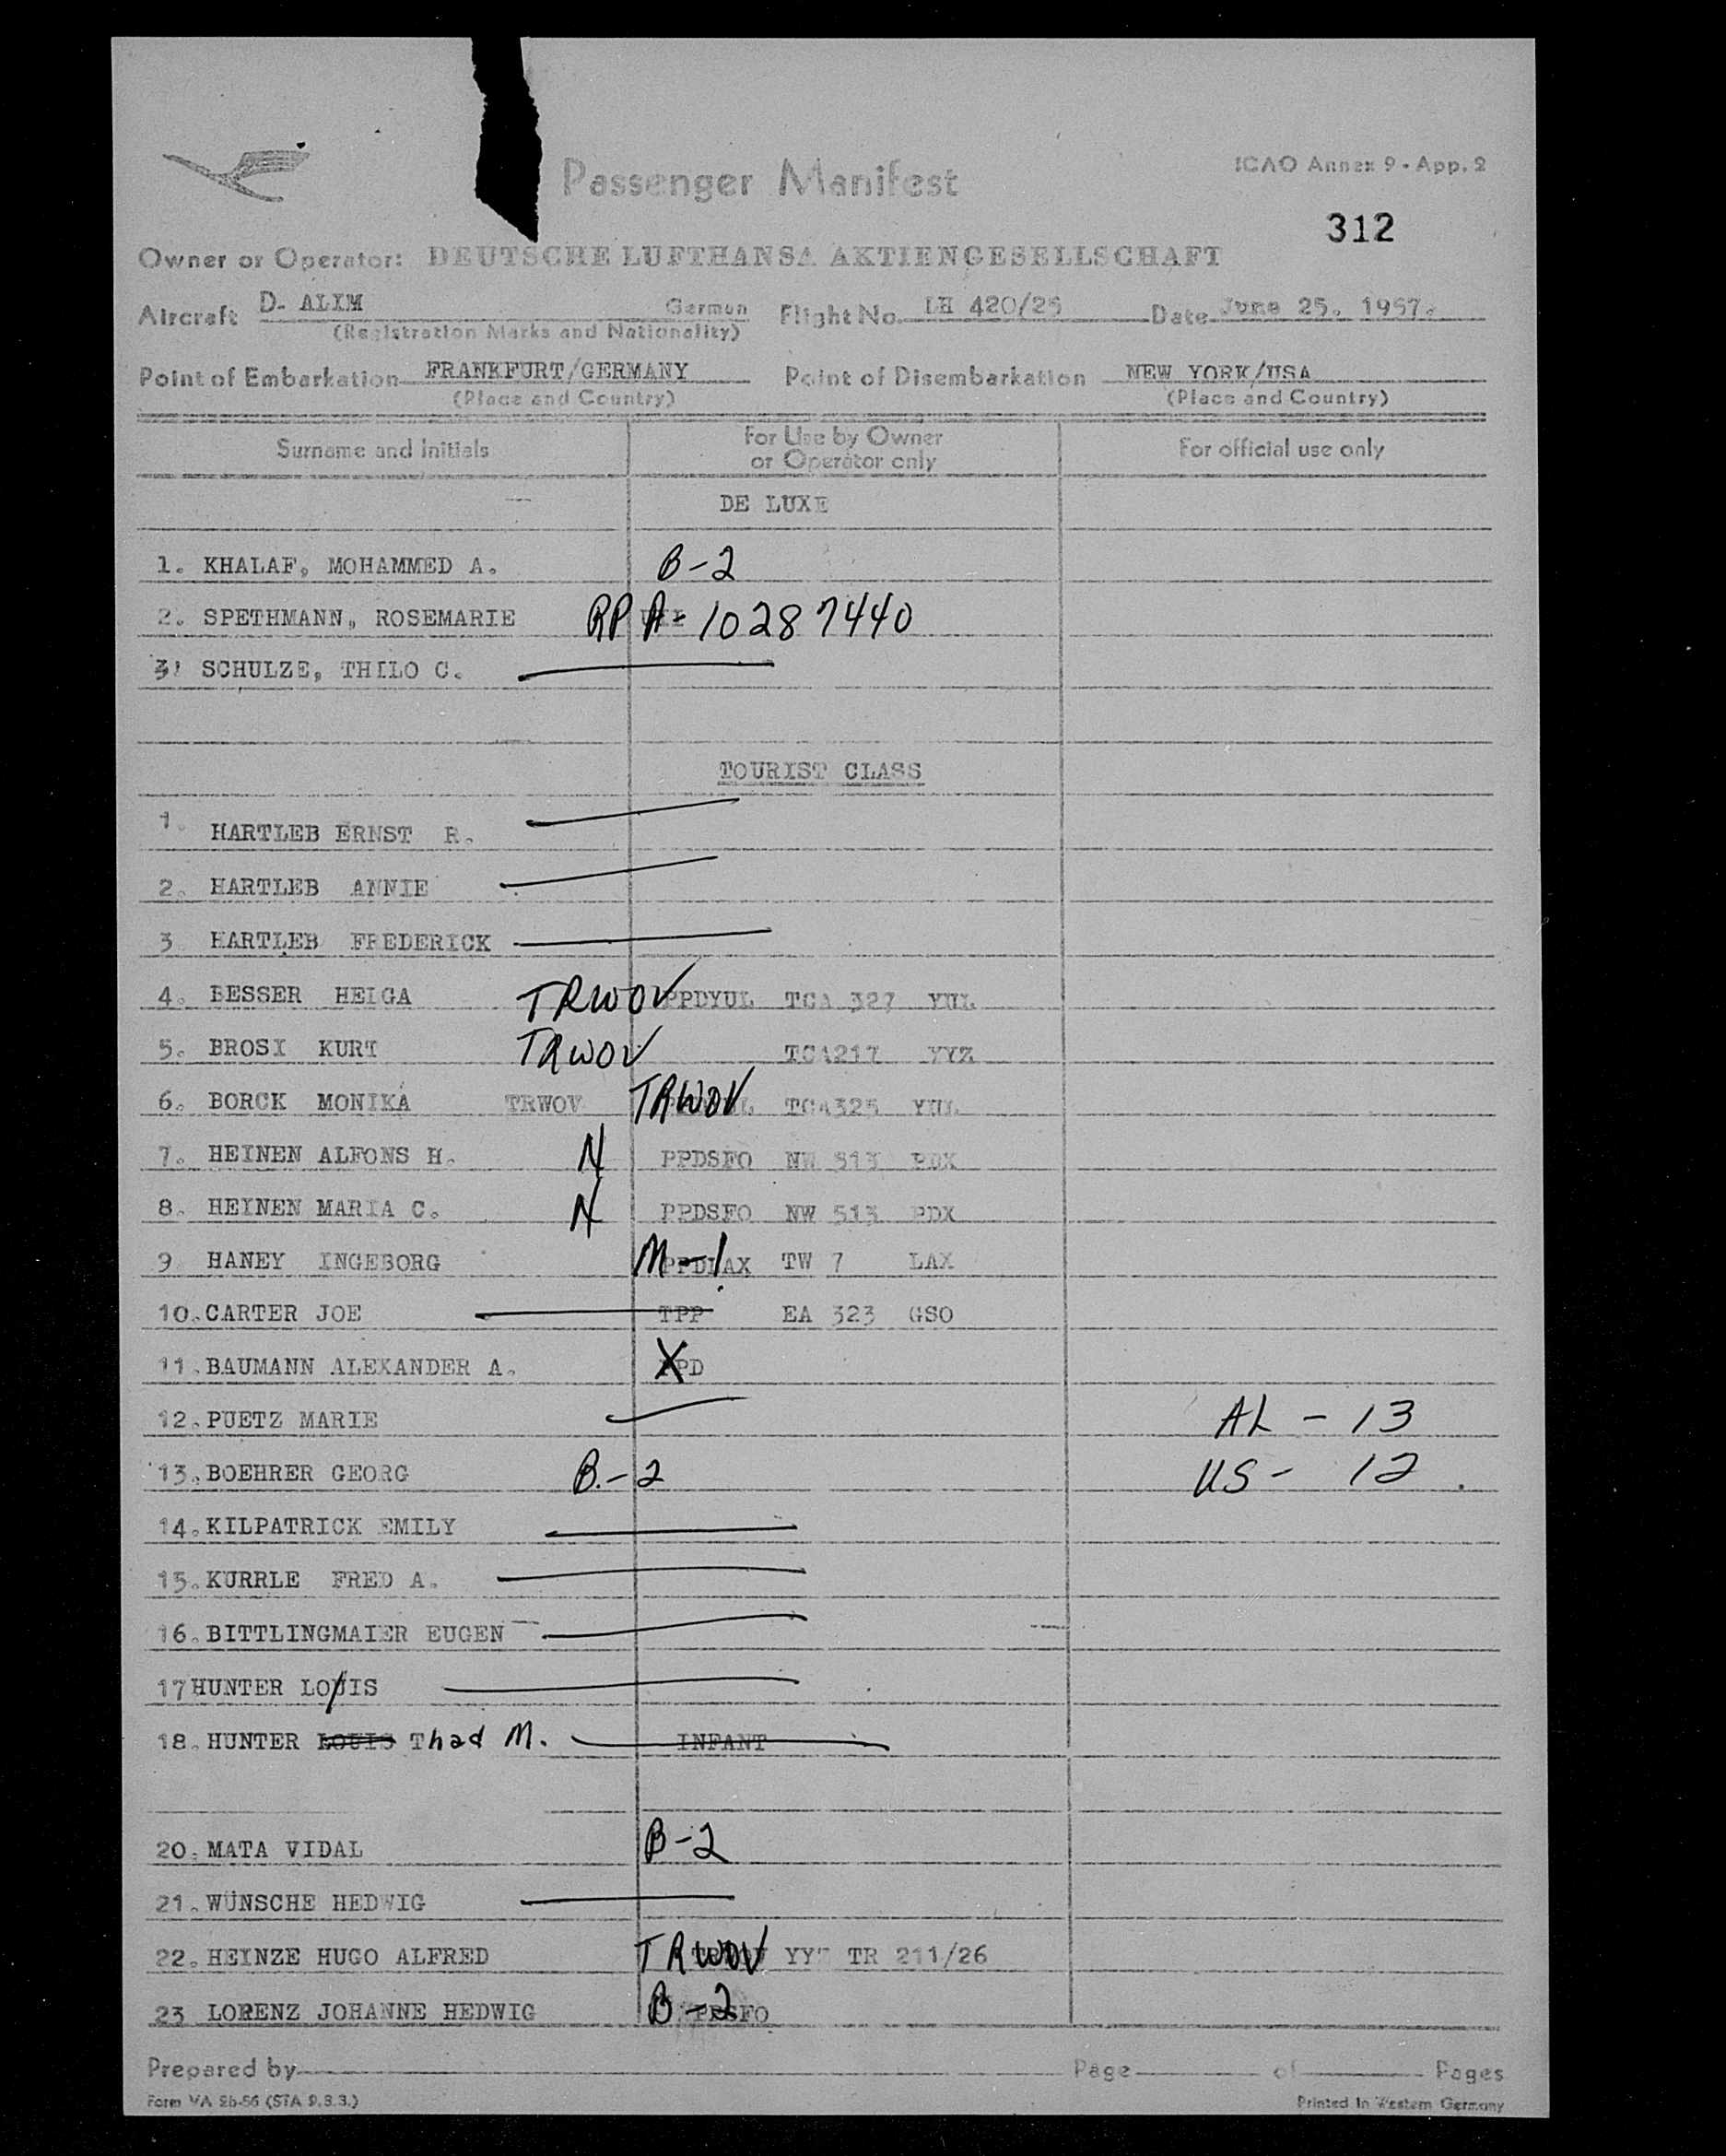 Passenger Manifest
ICAO Annex 9 - App. 2
312
Owner or Operator: DEUTSCHE LUFTHANSA AKTIENGESELLSCHAFT
Aircraft D- ALIM German Flight No. LH 420/25 Date June 25. 1957.
(Registration Marks and Nationality)
Point of Embarkation FRANKFURT/GERMANY Point of Disembarkation NEW YORK/USA
(Place and Country) (Place and Country)
Surname and Initials For Use by Owner or Operator only For official use only
DE LUXE
1. KHALAF, MOHAMMED A. B-2
2. SPETHMANN, ROSEMARIE RP A-10287440
3! SCHULZE, THILO C.
TOURIST CLASS
1. HARTLEB ERNST R.
2. HARTLEB ANNIE
3 HARTLEB FREDERICK
4. BESSER HELGA TRWOV PPDYUL TCA 327 YUL
5. BROSI KURT TRWOV TCA217 YYZ
6. BORCK MONIKA TRWOV TRWOV TCA325 YUL
7. HEINEN ALFONS H. N PPDSFO NW 513 PDX
8. HEINEN MARIA C. N PPDSFO NW 513 PDX
9 HANEY INGEBORG M-1 PPDLAX TW 7 LAX
10. CARTER JOE TPP EA 323 GSO
11. BAUMANN ALEXANDER A. X PPD
12. PUETZ MARIE AL - 13
13. BOEHRER GEORG B.-2 US - 12.
14. KILPATRICK EMILY
15. KURRLE FRED A.
16. BITTLINGMAIER EUGEN
17 HUNTER LOUIS
18. HUNTER LOUIS Thad M. INFANT
20. MATA VIDAL B-2
21. WÜNSCHE HEDWIG
22. HEINZE HUGO ALFRED TRWOV TR 211/26
23 LORENZ JOHANNE HEDWIG B-2
Prepared by Page of Pages
Form VA 2b-56 (STA 9.8.3.) Printed in Western Germany